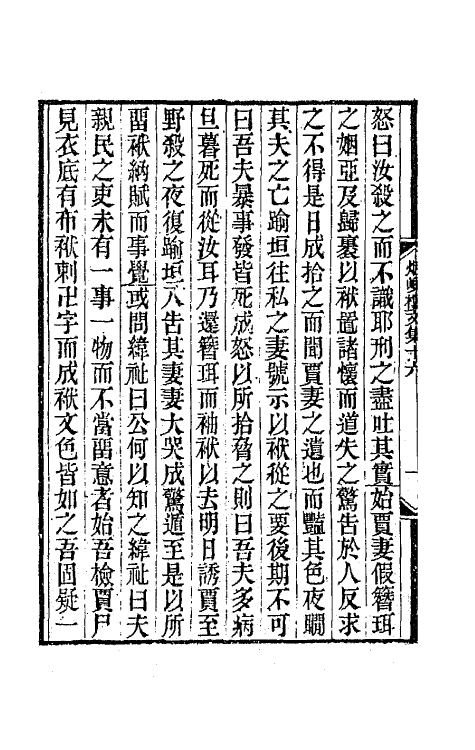 怒曰汝殺之而不識耶刑之盡吐其實始賈妻假簪珥
之姻亞及歸裹以袱置諸懷而道失之驚告於人反求
之不得是日成拾之而聞賈妻之遺也而豔其色夜瞯
其夫之亡踰垣往私之妻號示以袱從之要後期不可
曰吾夫暴事發皆死成怒以所拾脅之則曰吾夫多病
旦暮死而從汝耳乃還簪珥而袖袱以去明日誘賈至
野殺之夜復踰垣入告其妻妻大哭成驚遁至是以所
畱袱納賦而事覺或問緯祉曰公何以知之緯祉曰夫
親民之吏未有一事一物而不當畱意者始吾檢賈尸
見衣底有布袱刺卍字而成袱文色皆如之吾固疑一
煙嶼樓文集十六